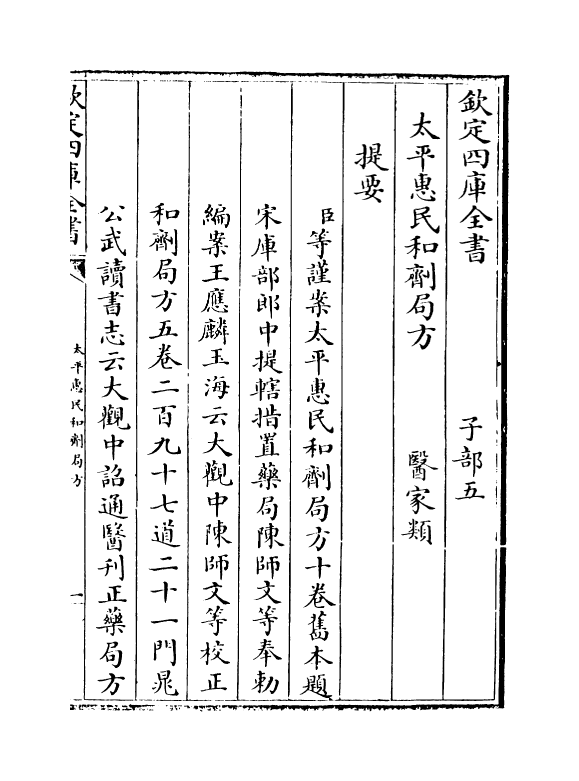 欽定四庫全書 子部五
太平惠民和劑局方 醫家類
提要
臣等謹案太平惠民和劑局方十卷舊本題
宋庫部郎中提轄措置藥局陳師文等奉勅
編案王應麟玉海云大觀中陳師文等校正
和劑局方五卷二百九十七道二十一門晁
公武讀書志云大觀中詔通醫刊正藥局方
欽定四庫全書
太平惠民和劑局方
一